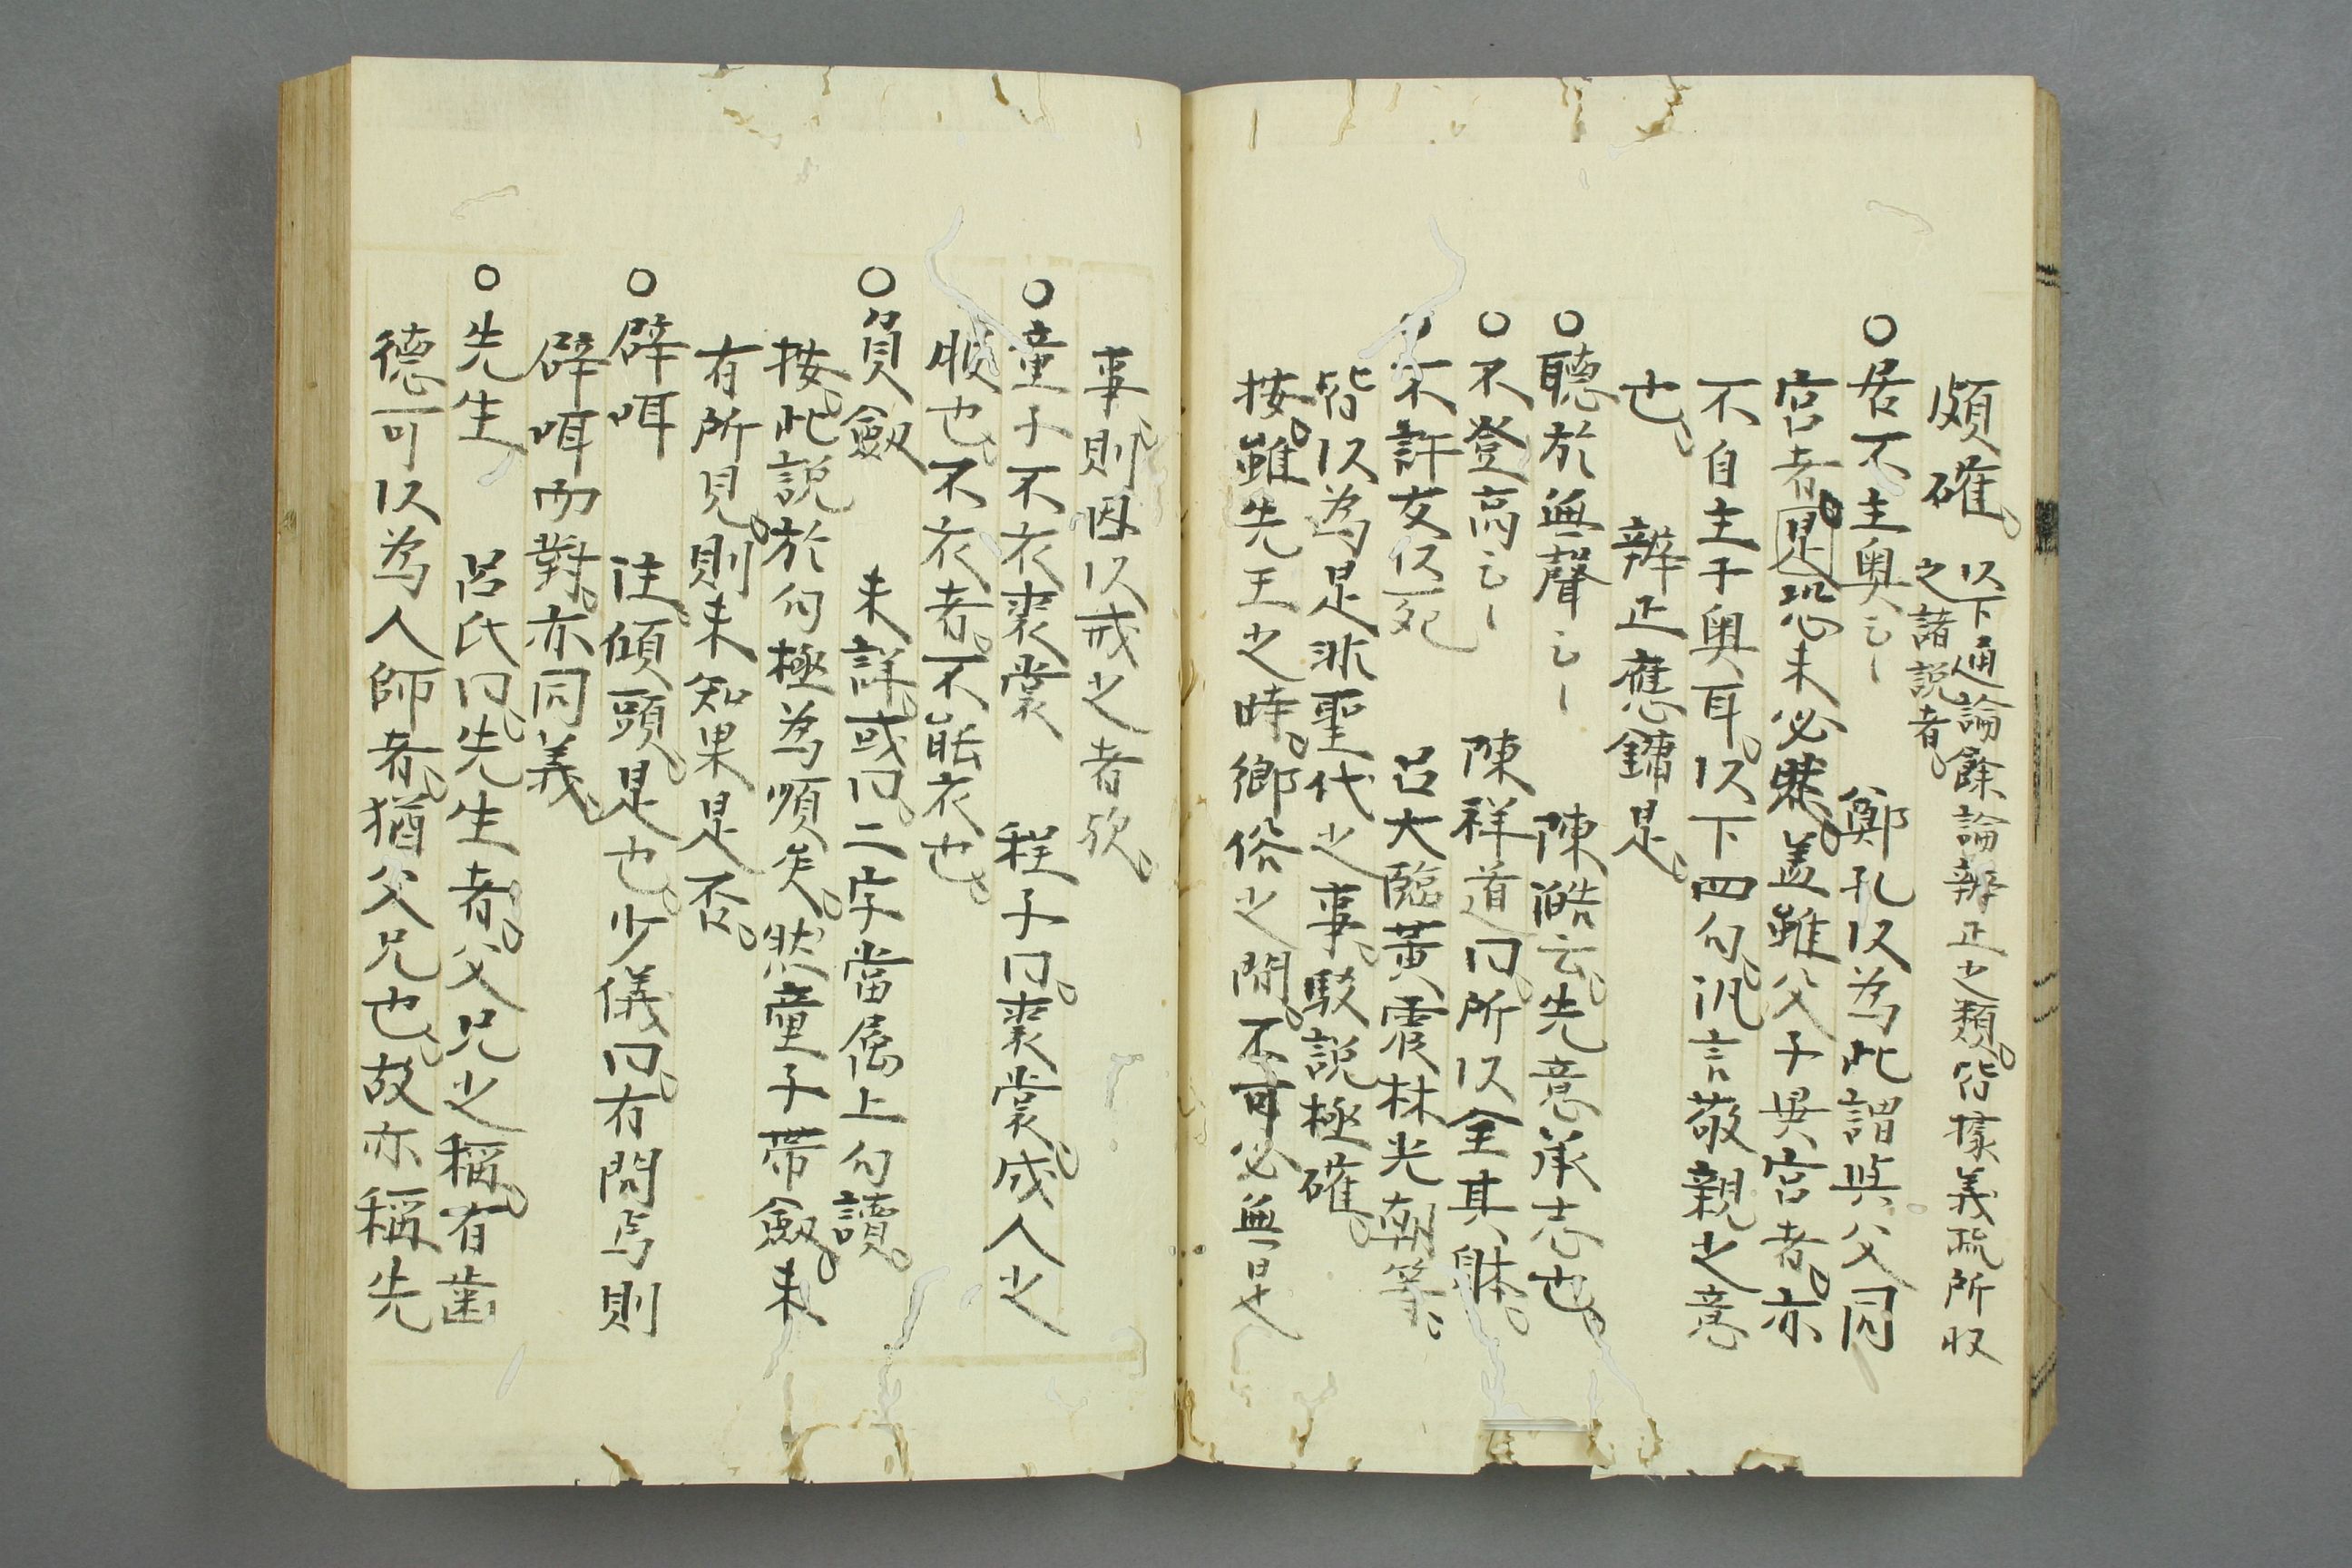 頗確。以下通論餘論辨正之類。皆據義疏所收
之諸説者。
○居不主奥云〻　鄭孔以為此謂與父同
宮者。恐未必然。盖雖父子異宮者。亦
不自主于奥耳。以下四句。汎言敬親之意
也。　辨正應鏞是。
○聽於無聲云〻　陳澔云。先意承志也。
○不登高云〻　陳祥道曰。所以全其躰。
不許友以死　呂大臨黄震林光朝等。
皆以為是非聖代之事。駁説極確。
按。雖先王之時。郷俗之間。不可必無是
事。則因以戒之者欤。
○童子不衣裘裳　程子曰。裘裳。成人之
服也。不衣者。不能衣也。
○負劔　未詳。或曰。二字當属上句讀。
按。此説於句極為順矣。然童子帶劔。未
有所見。則未知果是否。
○辟咡　注。傾頭。是也。少儀曰。有問焉則
辟咡而對。亦同義。
○先生　呂氏曰。先生者。父兄之稱。有齒
德可以為人師者。猶父兄也。故亦稱先